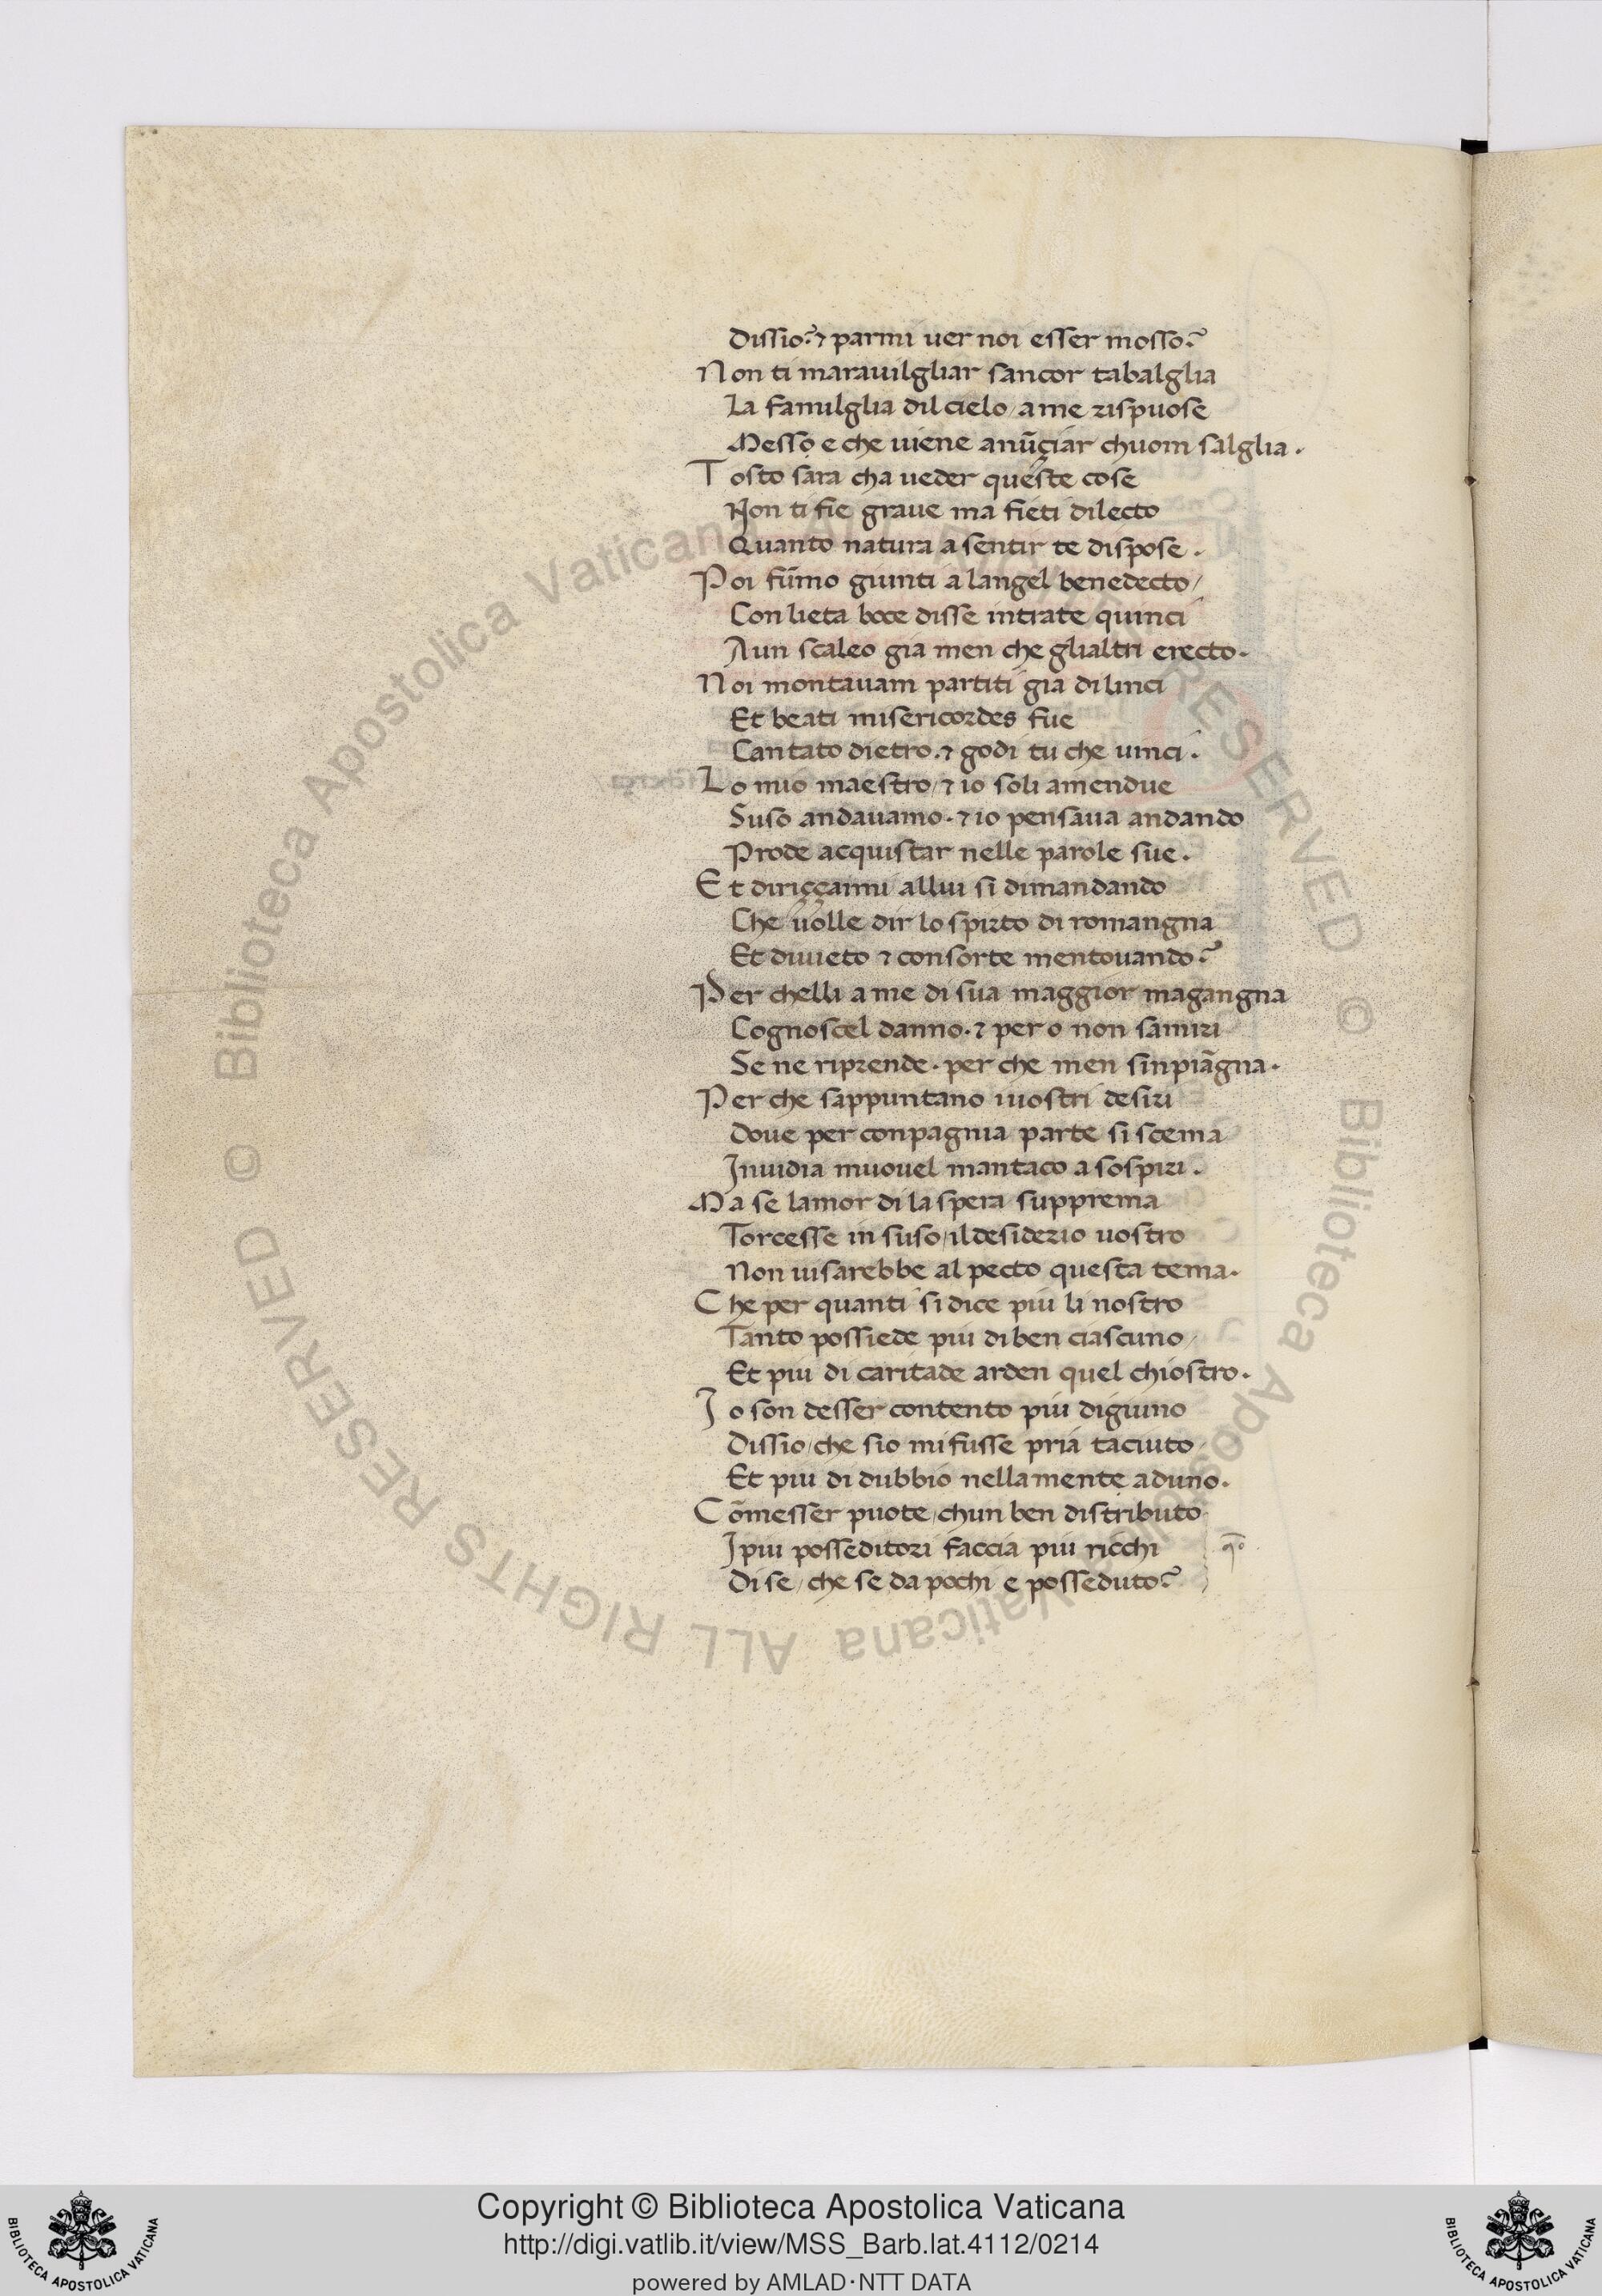 Dissio? ⁊ parmi uer noi esser mosso?
Non ti marauilgliar sancor tabalglia
La familglia dil cielo / a me rispuose
Messo e che uiene anūçiar chuom salglia.
Tosto sara cha ueder queste cose
Non ti fie graue ma fieti dilecto
Quanto natura a sentir te dispose.
Poi fūmo giunti a langel benedecto /
Con lieta boce disse intrate quinci
Aun scaleo gia men che glialtri erecto.
Noi montauam partiti gia di linci
Et beati misericordes fue
Cantato dietro. ⁊ godi tu che uinci.
Lo mio maestro / ⁊ io soli amendue
Suso andauamo. ⁊ io pensaua andando
Prode acquistar nelle parole sue.
Et diriççaimi allui si dimandando
Che uolle dir lo spirto di romangna
Et diuieto ⁊ consorte mentouando?
Per chelli a me di sua maggior magangna
Cognoscel danno. ⁊ per o non samiri
Se ne riprende. per che men sinpiāgna.
Per che sappuntano iuostri desiri
Doue per conpagnia parte si scema
Inuidia muouel mantaco a sospiri.
Ma se lamor di la spera supprema
Torcesse in suso / il desiderio uostro
Non uisarebbe al pecto questa tema.
Che per quanti si dice piu li nostro
Tanto possiede piu di ben ciascuno /
Et piu di caritade arden quel chiostro.
Io son desser contento piu digiuno
Dissio / che sio mi fusse pria taciuto
Et piu di dubbio nella mente aduno.
Cōmesser puote / chun ben distributo
I piu posseditori faccia piu ricchi
Di se / che se da pochi e posseduto?
Copyright © Biblioteca Apostolica Vaticana
http://digi.vatlib.it/view/MSS_Barb.lat.4112/0214
powered by AMLAD·NTT DATA
BIBLIOTECA APOSTOLICA VATICANA
BIBLIOTECA APOSTOLICA VATICANA
© Biblioteca Apostolica Vaticana ALL RIGHTS RESERVED
© Biblioteca Apostolica Vaticana ALL RIGHTS RESERVED